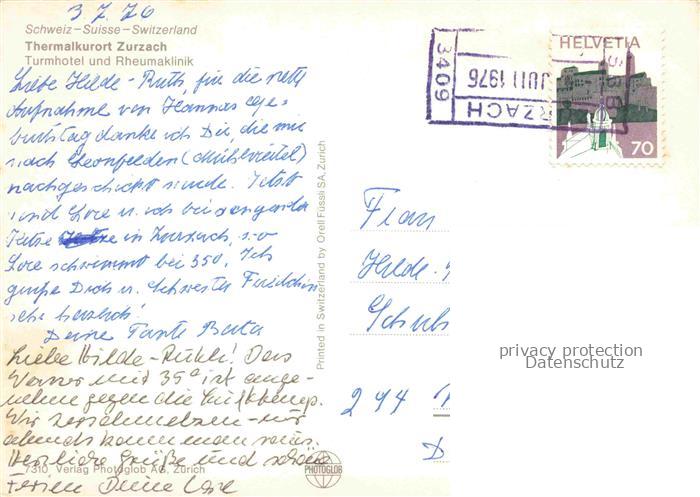 3.7.76
Schweiz – Suisse – Switzerland
Thermalkurort Zurzach
Turmhotel und Rheumaklinik
Liebe Hilde-Ruth, für die nette
Aufnahme von Hannas
danke ich Dir, die mir
nach Leonfelden (Mühlviertel)
nachgeschickt wurde. Jetzt
sind Lore u. ich bei
Hitze in Zurzach, wo
Lore schwimmt bei 35°. Ich
grüße Dich u. Schwester
sehr herzlich!
Deine Tante Berta
Liebe Hilde-Ruth! Das
Wasser mit 35° ist ange-
nehm gegen die
Wir zerschmelzen - nur
abends kann man raus.
Herzliche Grüße und schöne
Ferien Deine Lore
7310 Verlag Photoglob AG, Zürich
PHOTOGLOB
Printed in Switzerland by Orell Füssli SA, Zürich
3409
JULI 1976
RZACH
HELVETIA
70
Frau
Hilde-
Schub
244
D
privacy protection
Datenschutz